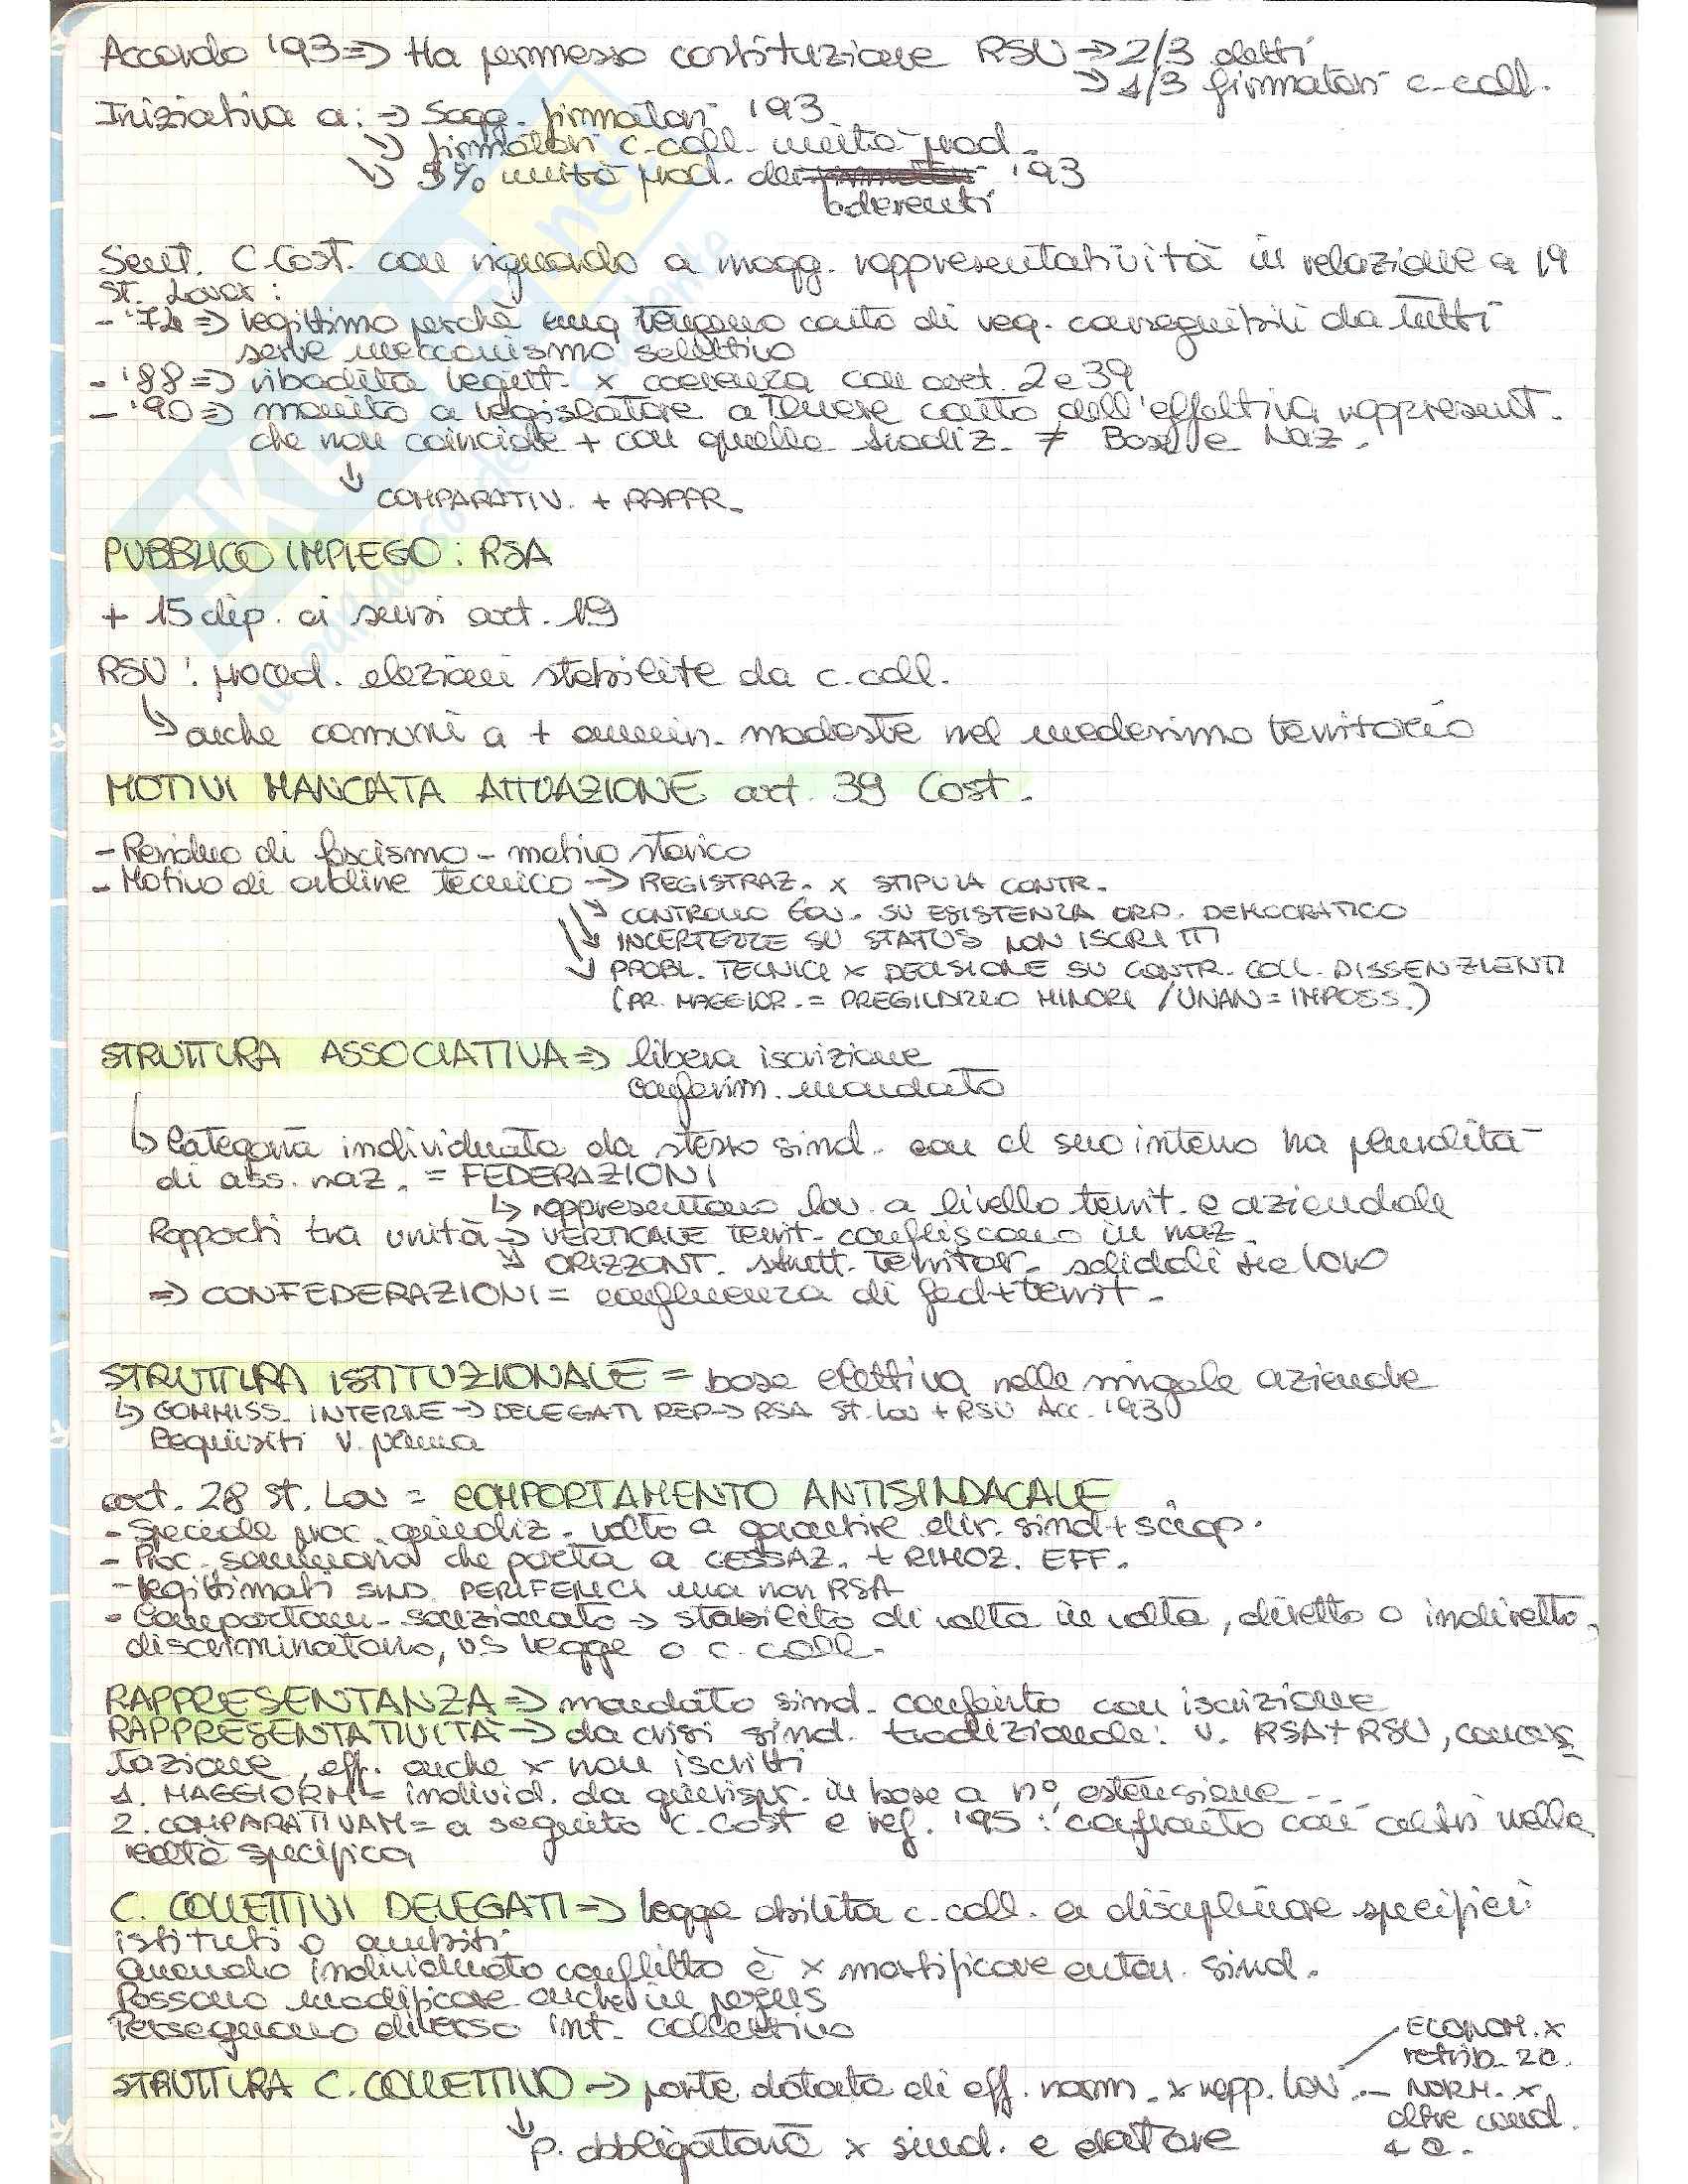 Accordo '93 => Ha permesso costituzione RSU => 2/3 eletti
=> 1/3 firmatari c.coll.
Iniziativa a: => Sogg. firmatari '93
firmatari c.coll. unità prod.
5% unità prod. dei '93
aderenti
Sent. C.Cost. con riguardo a magg. rappresentatività in relazione a 19
St. Lavor:
- '74 => legittimo perchè tengono conto di req. conseguibili da tutti
serve meccanismo selettivo
- '88 => ribadita legitt. x coerenza con art. 2 e 39
- '90 => monito a legislatore a tenere conto dell'effettiva rappresent.
che non coincide + con quella tradiz. ≠ Base e Naz.
↓ COMPARATIV. + RAPPR.
PUBBLICO IMPIEGO: RSA
+ 15 dip. ai sensi art. 19
RSU: proced. elezioni stabilite da c.coll.
↳ anche comuni a + ammin. modeste nel medesimo territorio
MOTIVI MANCATA ATTUAZIONE art. 39 Cost.
- Residuo di fascismo - motivo storico
- Motivo di ordine tecnico -> REGISTRAZ. x STIPULA CONTR.
CONTROLLO GOV. SU ESISTENZA ORD. DEMOCRATICO
INCERTEZZE SU STATUS NON ISCRITTI
PROBL. TECNICI x DECISIONE SU CONTR. COLL. DISSENZIENTI
(PR. MAGGIOR. = PREGIUDIZIO MINORI / UNAN = IMPOSS.)
STRUTTURA ASSOCIATIVA => libera iscrizione
conferim. mandato
↳ Categoria individuata da stesso sind. con al suo interno ha pluralità
di ass. naz. = FEDERAZIONI
↳ rappresentano lav. a livello territ. e aziendale
Rapporti tra unità -> VERTICALE territ. confluiscono in naz.
↘ ORIZZONT. strutt. territor. solidali tra loro
=> CONFEDERAZIONI = confluenza di fed + territ.
STRUTTURA ISTITUZIONALE = base elettiva nelle singole aziende
↳ COMMISS. INTERNE -> DELEGATI REP -> RSA St. Lav + RSU Acc. '93
Requisiti v. prima
art. 28 St. Lav = COMPORTAMENTO ANTISINDACALE
- Speciale proc. giudiz. volto a garantire dir. sind + sciop.
- Proc. sommaria che porta a CESSAZ. + RIMOZ. EFF.
- legittimati SIND. PERIFERICI ma non RSA
- Comportam. sanzionato -> stabilito di volta in volta, diretto o indiretto,
discriminatorio, vs legge o c.coll.
RAPPRESENTANZA => mandato sind. conferito con iscrizione
RAPPRESENTATIVITÀ -> da crisi sind. tradizionale: v. RSA + RSU, concer
tazione, eff. anche x non iscritti
1. MAGGIORM = individ. da giurispr. in base a n° estensione...
2. COMPARATIVAM = a seguito C.Cost e ref. '95: confronto con altri nella
realtà specifica
C. COLLETTIVI DELEGATI => legge abilita c.coll. a disciplinare specifici
istituti o ambiti
Quando individuato conflitto è x mortificare auton. sind.
Possono modificare anche in pejus
Perseguono diverso int. collettivo
ECONOM. x
retrib. 2a.
STRUTTURA C.COLLETTIVO -> parte dotata di eff. norm. x rapp. lav. - NORM. x
altre cond.
4 a.
↓ p. obbligatoria x sind. e datore